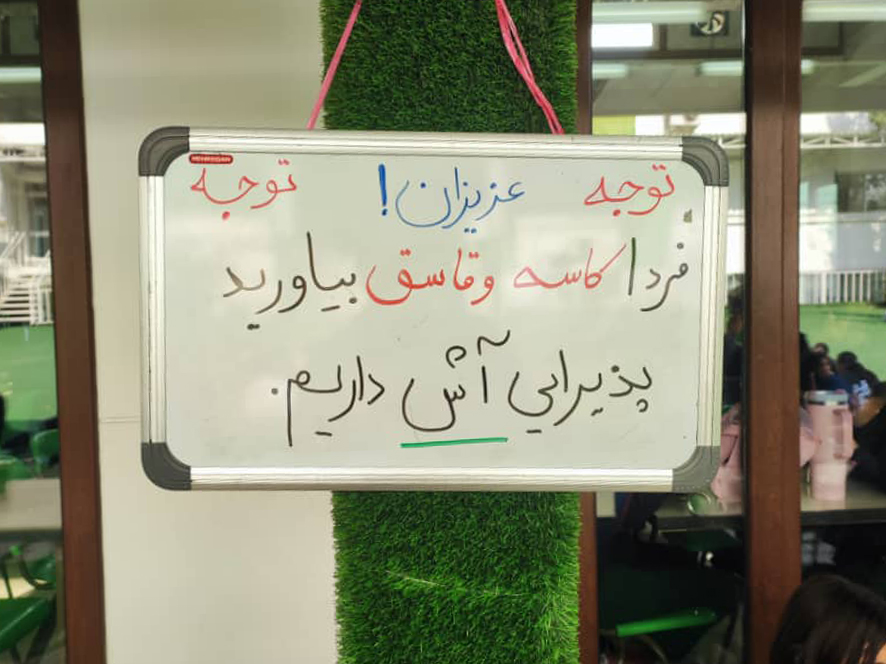 توجه عزیزان! توجه
فردا کاسه وقاسق بیاورید
پذیرایی آش داریم.